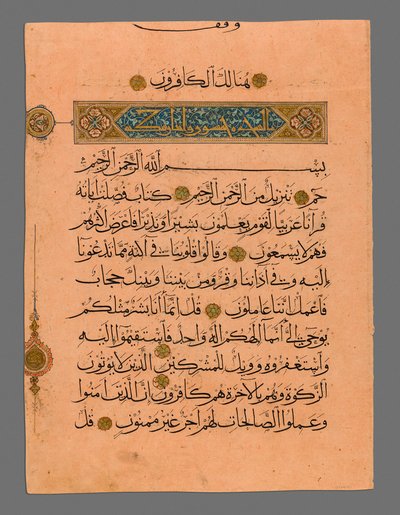 وقف
هنالك الكافرون
السجدة خمسون
بسم الله الرحمن الرحيم
حم تنزيل من الرحمن الرحيم كتاب فصلت اياته
قرآنا عربيا لقوم يعلمون بشيرا ونذيرا فاعرض اكثرهم
فهم لا يسمعون وقالوا قلوبنا في اكنة مما تدعونا
اليه وفي آذاننا وقر ومن بيننا وبينك حجاب
فاعمل اننا عاملون قل انما انا بشر مثلكم
يوحى الي انما الهكم اله واحد فاستقيموا اليه
واستغفروه وويل للمشركين الذين لا يؤتون
الزكوة وهم بالاخرة هم كافرون ان الذين امنوا
وعملوا الصالحات لهم اجر غير ممنون قل